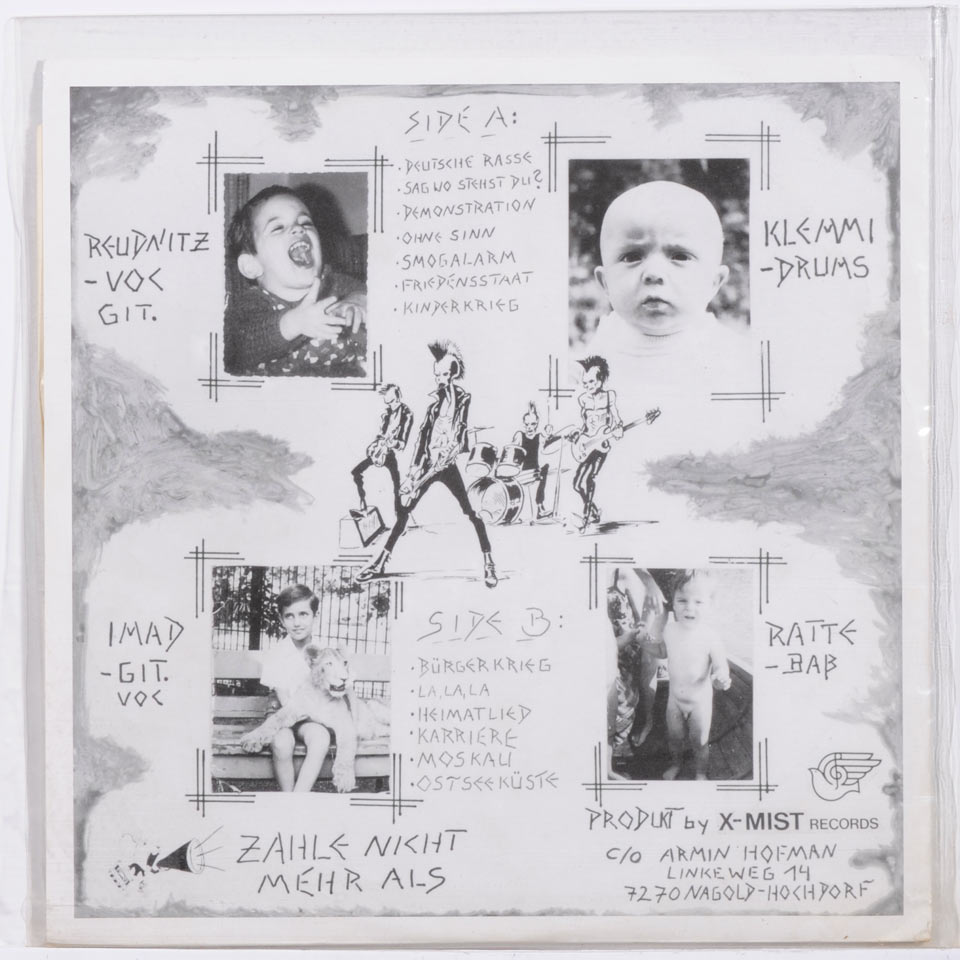 SIDE A:
• DEUTSCHE RASSE
• SAG WO STEHST DU?
• DEMONSTRATION
• OHNE SINN
• SMOGALARM
• FRIEDENSSTAAT
• KINDERKRIEG
REUDNITZ
-VOC
GIT.
KLEMMI
-DRUMS
IMAD
-GIT.
VOC
SIDE B:
• BÜRGERKRIEG
• LA, LA, LA
• HEIMATLIED
• KARRIERE
• MOSKAU
• OSTSEEKÜSTE
RATTE
-BAß
ZAHLE NICHT
MEHR ALS
PRODUKT by X-MIST RECORDS
C/O ARMIN HOFMAN
LINKEWEG 14
7270 NAGOLD-HOCHDORF